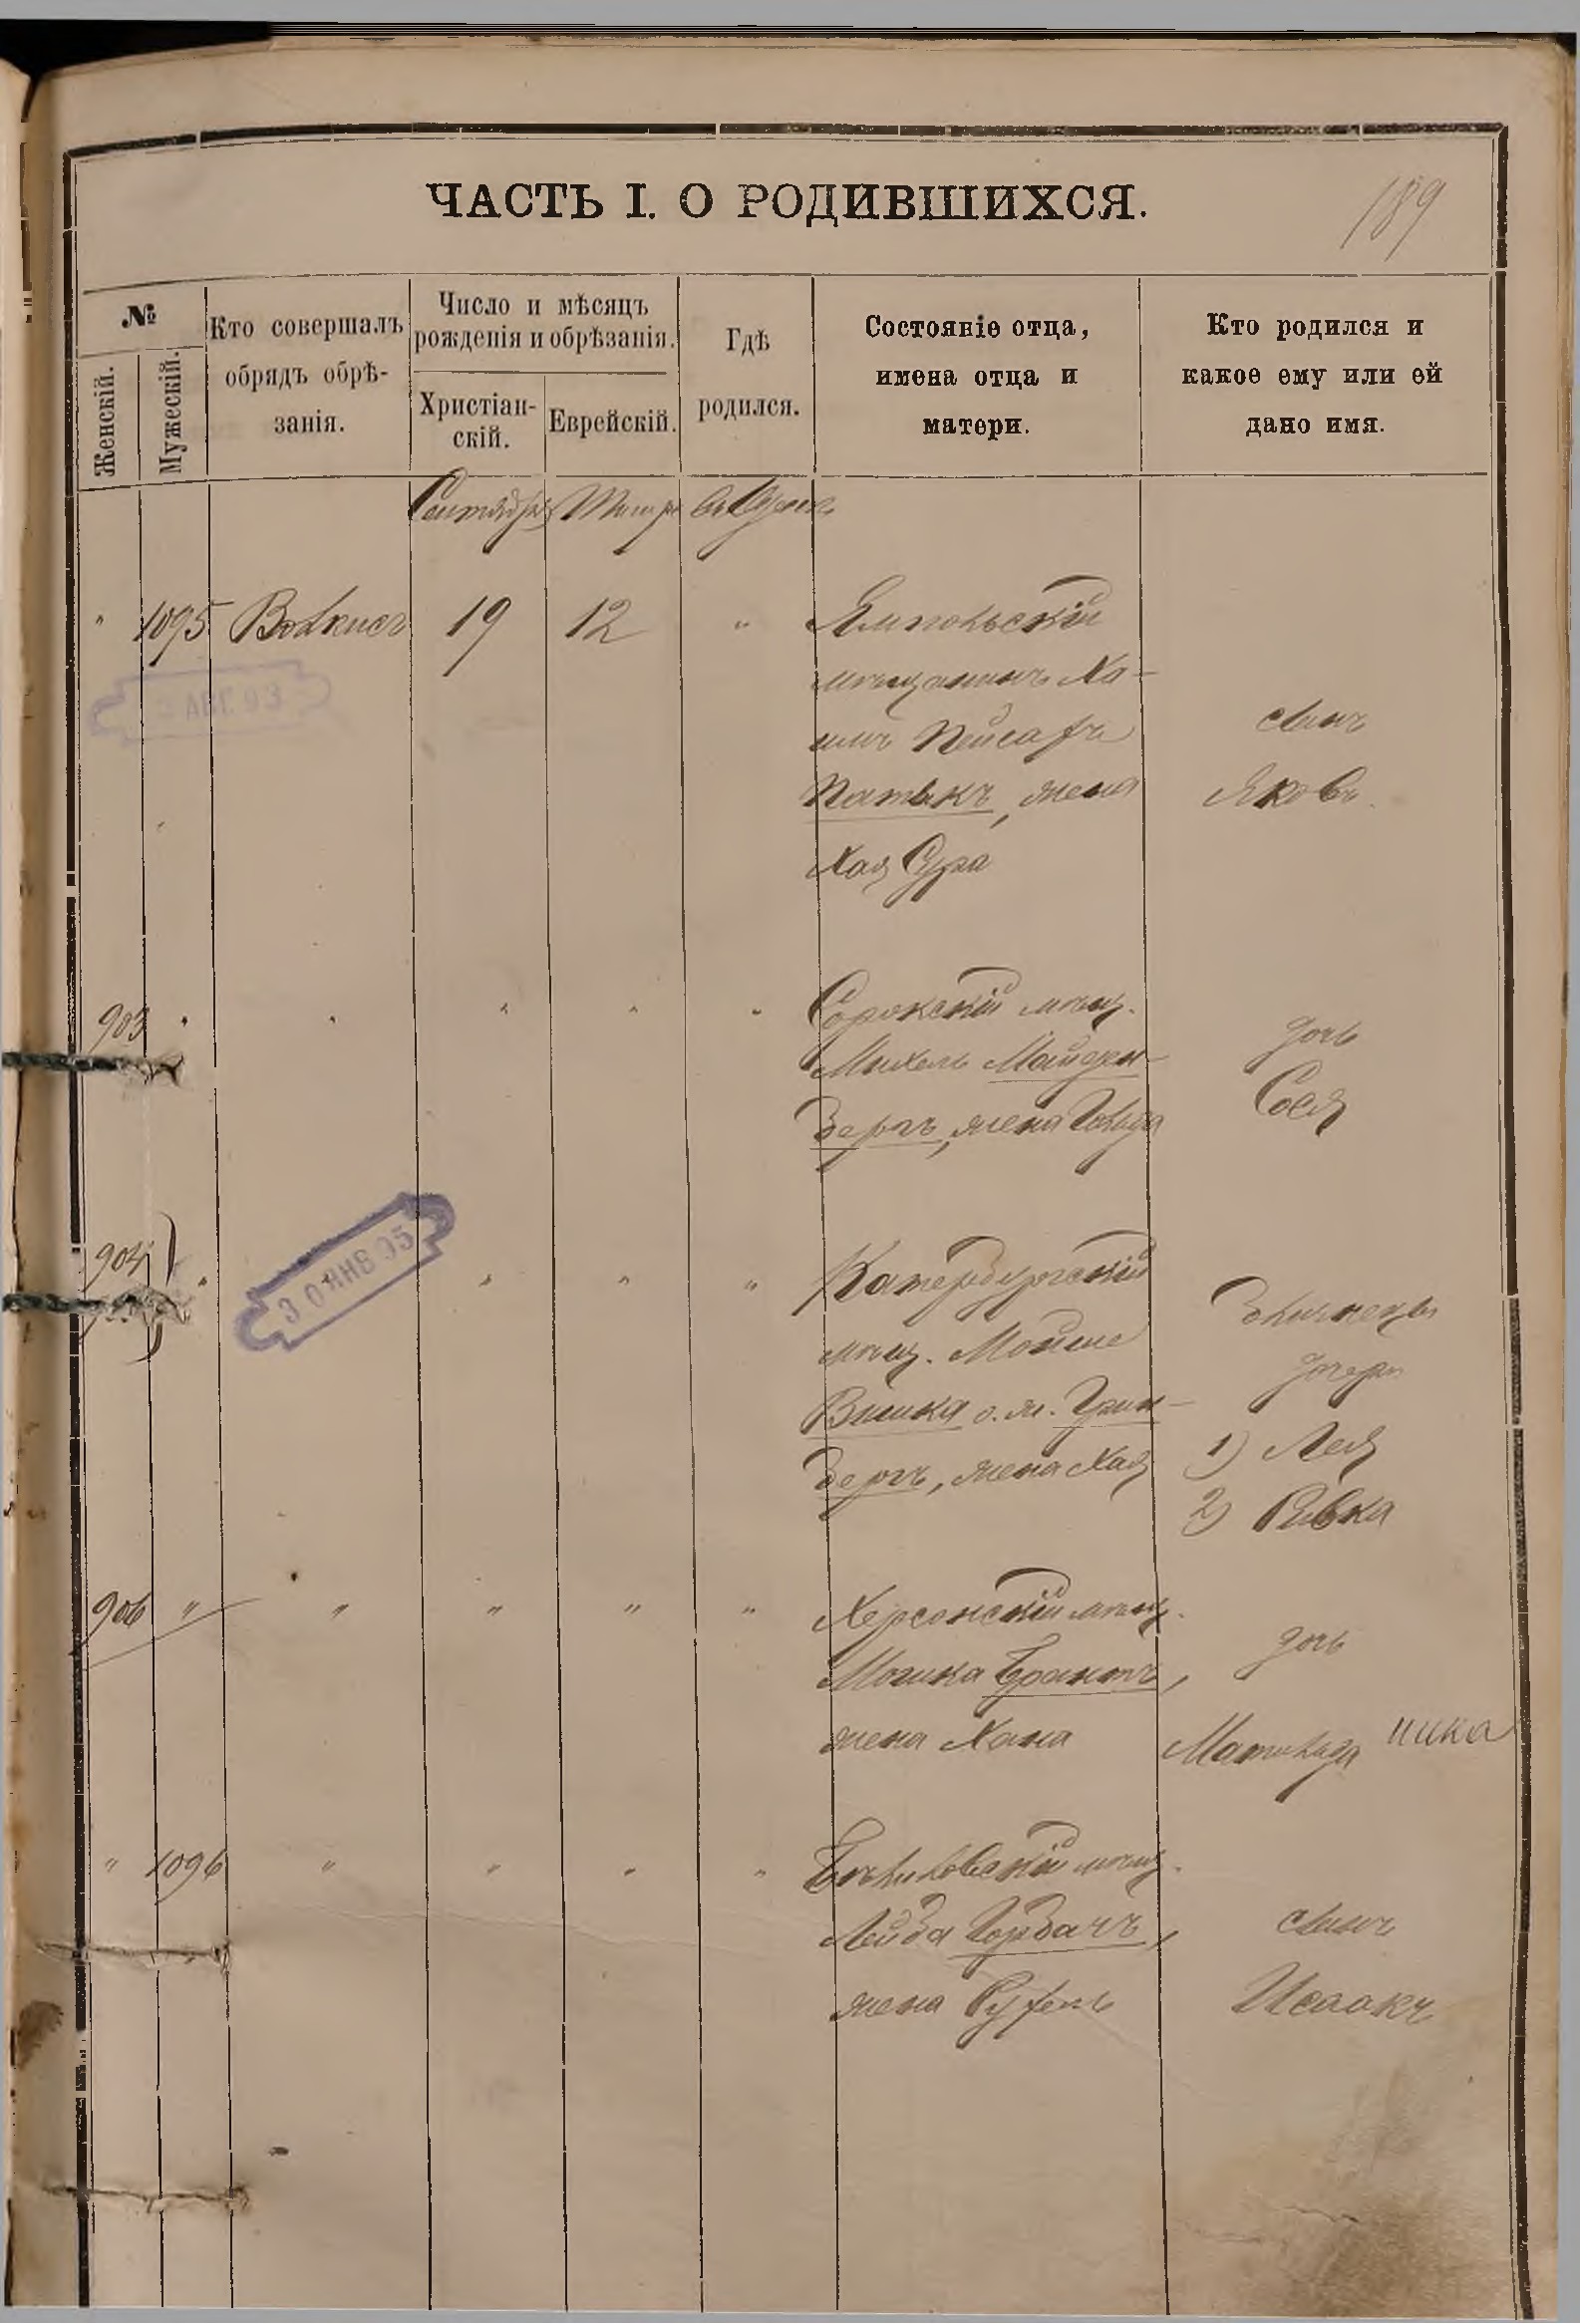 ЧАСТЬ I. О РОДИВШИХСЯ.
189
№
Женскій.
Мужескій.
Кто совершалъ
обрядъ обрѣ-
занія.
Число и мѣсяцъ
рожденія и обрѣзанія.
Христіан-
скій.
Еврейскій.
Гдѣ
родился.
Состояніе отца,
имена отца и
матери.
Кто родился и
какое ему или ей
дано имя.
Сентября Тишри въ Одессѣ
" 1095 Волкисъ 19 12 " Ямпольскій
мѣщанинъ Ха-
имъ Пейсахъ
Патыкъ, жена
Хая Сура
сынъ
Яковъ.
2 АВГ. 93
903 " " " " " Сорокскій мѣщ.
Михель Майден-
бергъ, жена Гольда
дочь
Сося
904 " " " " " Катербургскій
мѣщ. Мойше
Вишка о. ж. Грин-
бергъ, жена Хая
близнецы
дочери
1) Лея
2) Ривка
3 0 ЯНВ 95
906 " " " " " Херсонскій мѣщ.
Мошка Брантъ,
жена Хана
дочь
Матильда
" 1096 " " " " Бѣльховскій мѣщ.
Лейба Горбачъ,
жена Рухель
сынъ
Исаакъ